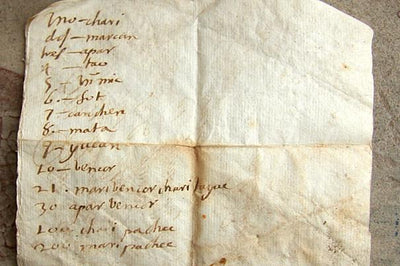 Uno – chari
dos – marcan
tres – apar
4 – tao
5. – himic
6. – sut
7 – canchen
8. – mata
9 – yucan
10 – bencor
21. maribencor chari tayque
30 apar bencor
100 chari pachac
200 mari pachac